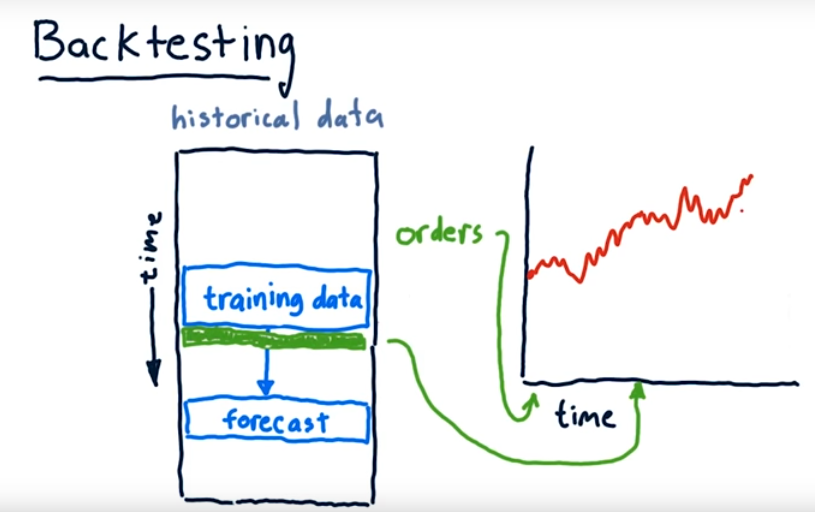 Backtesting
historical data
time
training data
forecast
orders
time